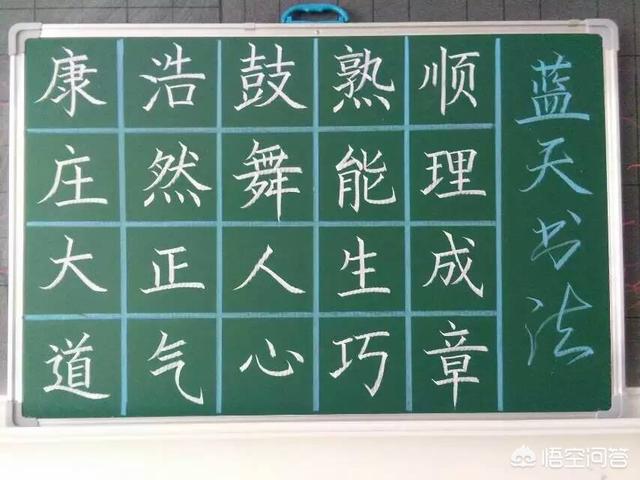 蓝天书法
顺理成章
熟能生巧
鼓舞人心
浩然正气
康庄大道
悟空问答